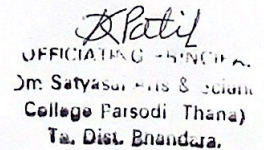 DPatil
OFFICIATING PRINCIPAL
Om Satyasai Arts & Scienc
College Parsodi Thana)
Ta. Dist. Bhandara.